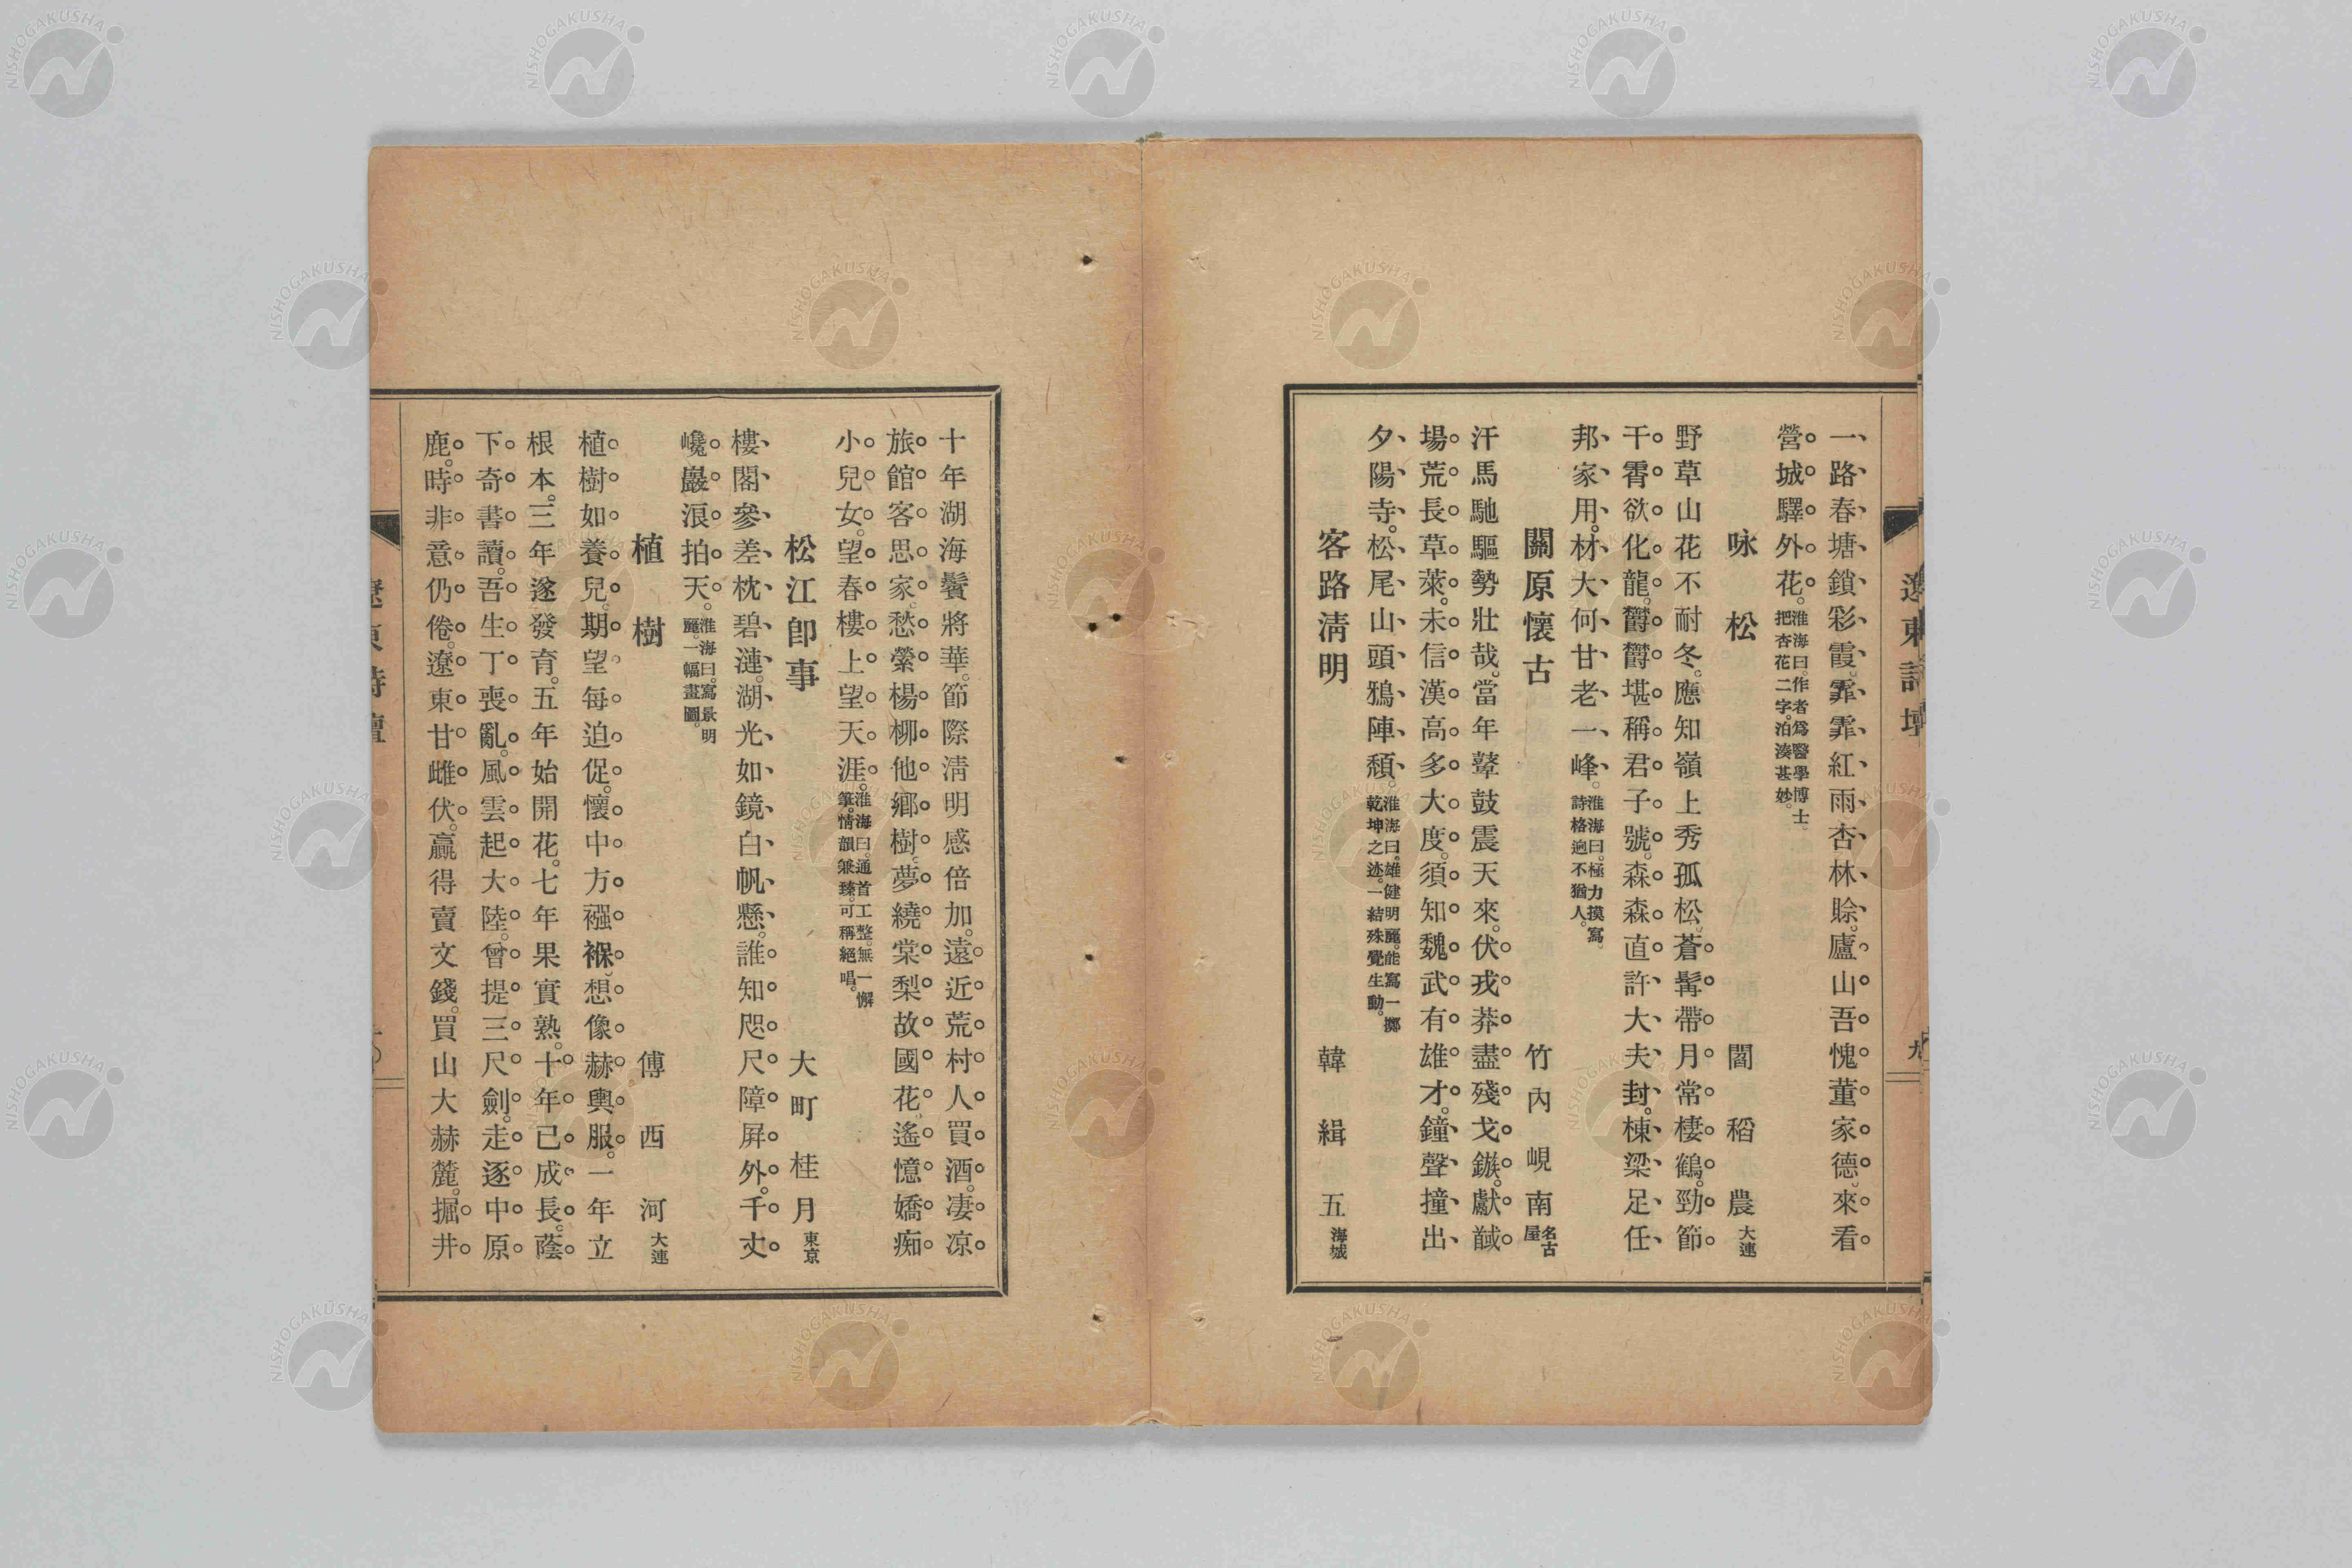 遼東詩壇
九
一路春塘鎖彩霞。霏霏紅雨杏林賒。廬山吾愧董家德。來看
營城驛外花。淮海曰。作者爲醫學博士。把杏花二字。泊湊甚妙。
咏松 閻稻農 大連
野草山花不耐冬。應知嶺上秀孤松。蒼髯帶月常棲鶴。勁節
干霄欲化龍。欝欝堪稱君子號。森森直許大夫封。棟梁足任
邦家用。材大何甘老一峰。淮海曰。極力摸寫。詩格逈不猶人。
關原懷古 竹內峴南 名古屋
汗馬馳驅勢壯哉。當年鼙鼓震天來。伏戎莽盡殘戈鏃。獻馘
場荒長草萊。未信漢高多大度。須知魏武有雄才。鐘聲撞出
夕陽寺。松尾山頭鴉陣頹。淮海曰。雄健明麗。能寫一擲乾坤之迹。一結殊覺生動。
客路淸明 韓緝五 海城
十年湖海鬢將華。節際淸明感倍加。遠近荒村人買酒。凄凉
旅館客思家。愁縈楊柳他鄉樹。夢繞棠梨故國花。遙憶嬌痴
小兒女。望春樓上望天涯。淮海曰。通首工整。無一懈筆。情韻兼臻。可稱絕唱。
松江卽事 大町桂月 東京
樓閣參差枕碧漣。湖光如鏡白帆懸。誰知咫尺障屛外。千丈
巉巖浪拍天。淮海曰。寫景明麗。一幅畫圖。
植樹 傅西河 大連
植樹如養兒。期望每迫促。懷中方襁褓。想像赫輿服。一年立
根本。三年遂發育。五年始開花。七年果實熟。十年已成長。蔭
下奇書讀。吾生丁喪亂。風雲起大陸。曾提三尺劍。走逐中原
鹿。時非意仍倦。遼東甘雌伏。贏得賣文錢。買山大赫麓。掘井
遼東詩壇